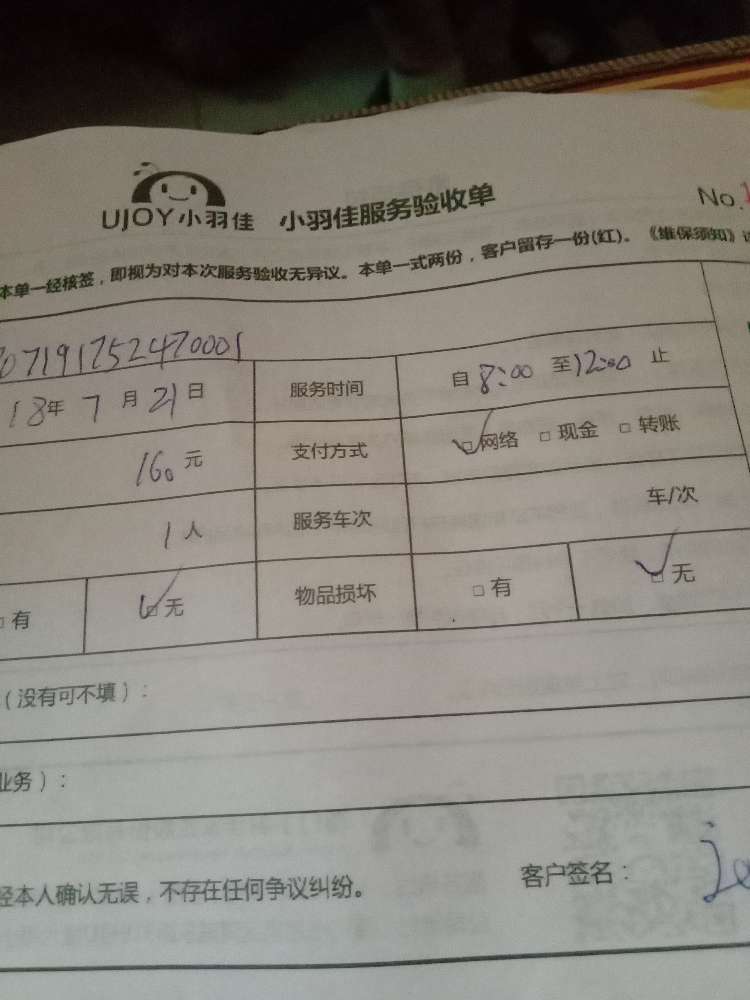 UJOY小羽佳 小羽佳服务验收单
No.
本单一经核签，即视为对本次服务验收无异议。本单一式两份，客户留存一份(红)。《维保须知》
07191752470001
18年7月21日 服务时间 自8:00至12:00止
160元 支付方式 □网络 □现金 □转账
1人 服务车次 车/次
□有 □无 物品损坏 □有 □无
（没有可不填）：
业务）：
经本人确认无误，不存在任何争议纠纷。 客户签名：